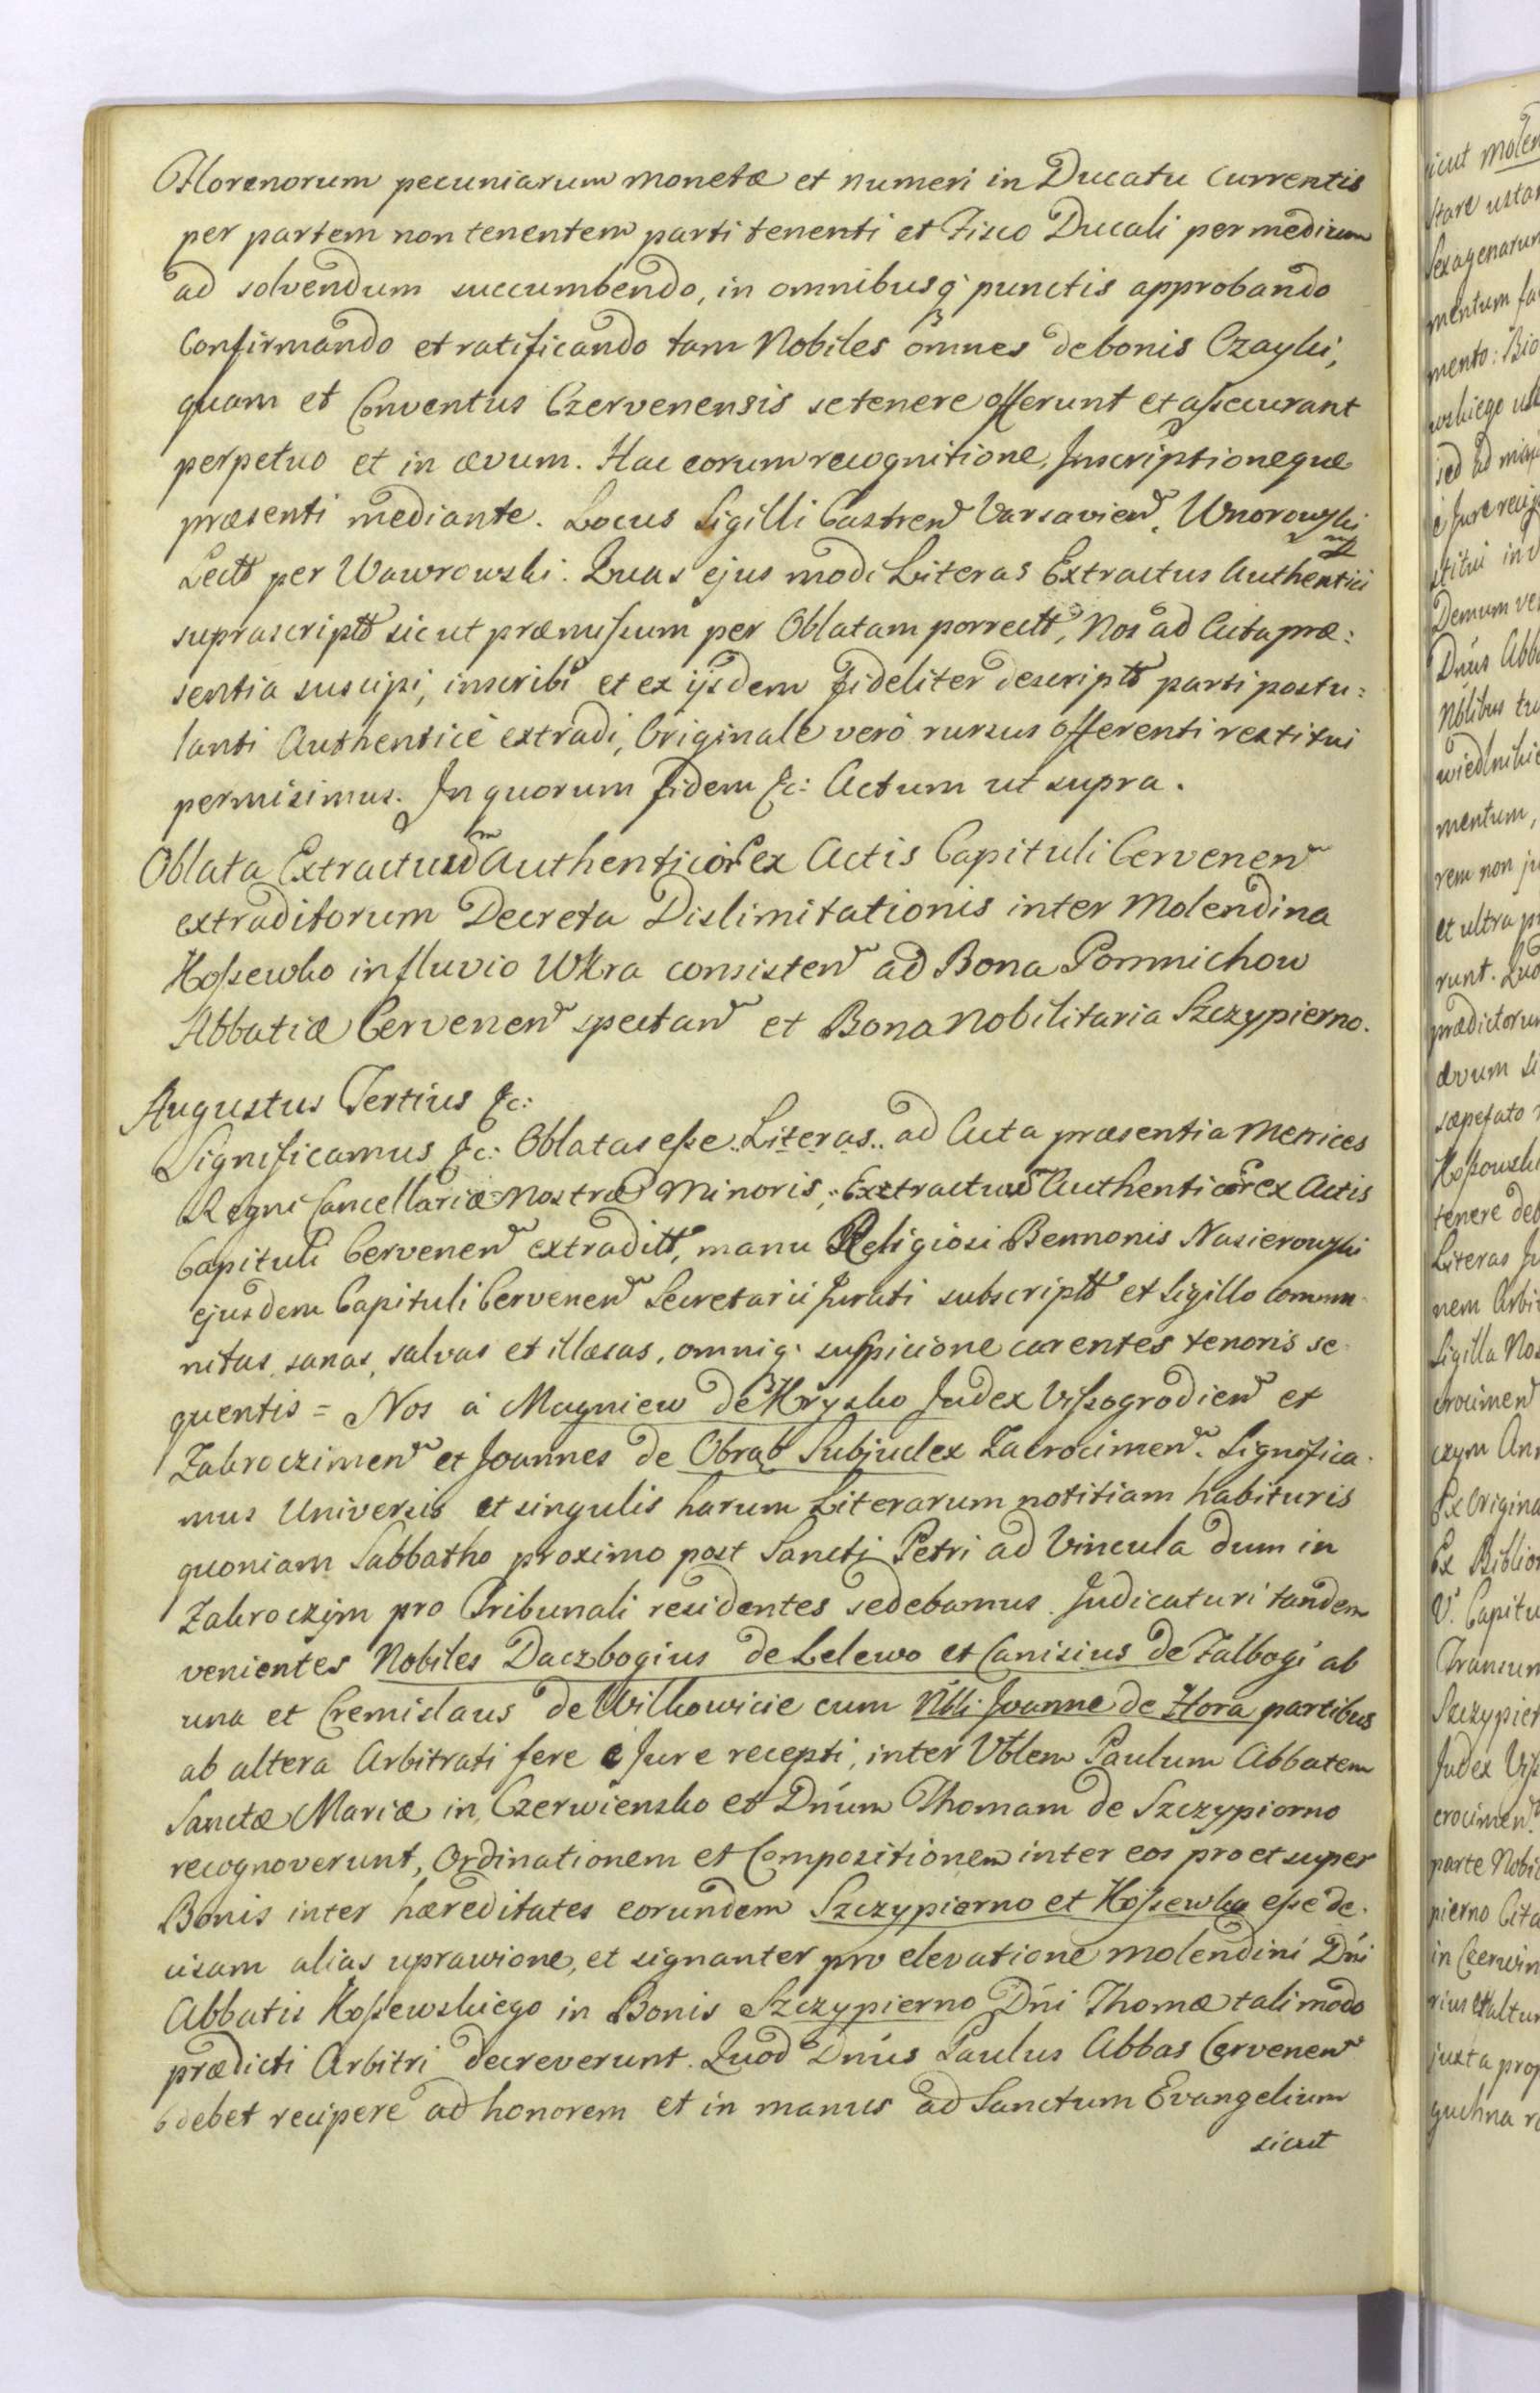 Florenorum pecuniarum monetæ et numeri in Ducatu Currentis
per partem non tenentem parti tenenti et Fisco Ducali per medium
ad solvendum succumbendo, in omnibusq; punctis approbando
Confirmando et ratificando tam Nobiles omnes de bonis Czayki,
quam et Conventus Czervenensis se tenere offerunt et assecurant
perpetuo et in ævum. Hac eorum recognitione, Inscriptioneque
præsenti mediante. Locus Sigilli Castren Varsavien. Unorowski
mp
Lectt per Wawrowski. Quas ejus modi Literas Extractus Authentici
suprascriptt sicut præmissum per Oblatam porrectt, Nos ad Acta præ:
sentia suscipi, inscribi et ex ijsdem fideliter descriptt parti postu:
lanti Authenticè extradi, Originale verò rursus offerenti restitui
permisimus. In quorum fidem &c: Actum ut supra.
Oblata Extractuum Authenticor ex Actis Capituli Cervenen
extraditorum Decreta Dislimitationis inter Molendina
Kossewko in fluvio Wkra consisten ad Bona Pomnichow
Abbatiæ Cervenen spectan et Bona Nobilitaria Szczypierno.
Augustus Tertius &c:
Significamus &c: Oblatas esse Literas ad Acta præsentia Metrices
Regni Cancellariæ Nostræ Minoris, Extractuum Authenticor ex Actis
Capituli Cervenen extraditt, manu Religiosi Bennonis Nasierowski
ejusdem Capituli Cervenen Secretarii Jurati subscriptt et Sigillo commu
nitas, sanas, salvas et illæsas, omniq; suspicione carentes tenoris se
quentis = Nos à Magniew de Krysko Judex Vissogrodien et
Zakroczimen et Joannes de Obrab Subjudex Zacrocimen. Significa
mus Universis et singulis harum Literarum notitiam habituris
quoniam Sabbatho proximo post Sancti Petri ad Vincula dum in
Zakroczym pro Tribunali residentes sedebamus Judicaturi tandem
venientes Nobiles Daczbogius de Lelewo et Canisius de Falbogi ab
una et Cremislaus de Wilkowicie cum Nbli Joanne de Hora partibus
ab altera Arbitrati fere è Jure recepti, inter Vblem Paulum Abbatem
Sanctæ Mariæ in Czerwiensko et Dnum Thomam de Szczypiorno
recognoverunt, Ordinationem et Compositionem inter eos pro et super
Bonis inter hæreditates eorundem Szczypiorno et Kossewka esse de
cisam alias uprawione, et signanter pro elevatione molendini Dni
Abbatis Kossewskiego in Bonis Szczypierno Dni Thomæ tali modo
prædicti Arbitri decreverunt. Quod Dnus Paulus Abbas Cervenen
debet recipere ad honorem et in manus ad Sanctum Evangelium
sicut